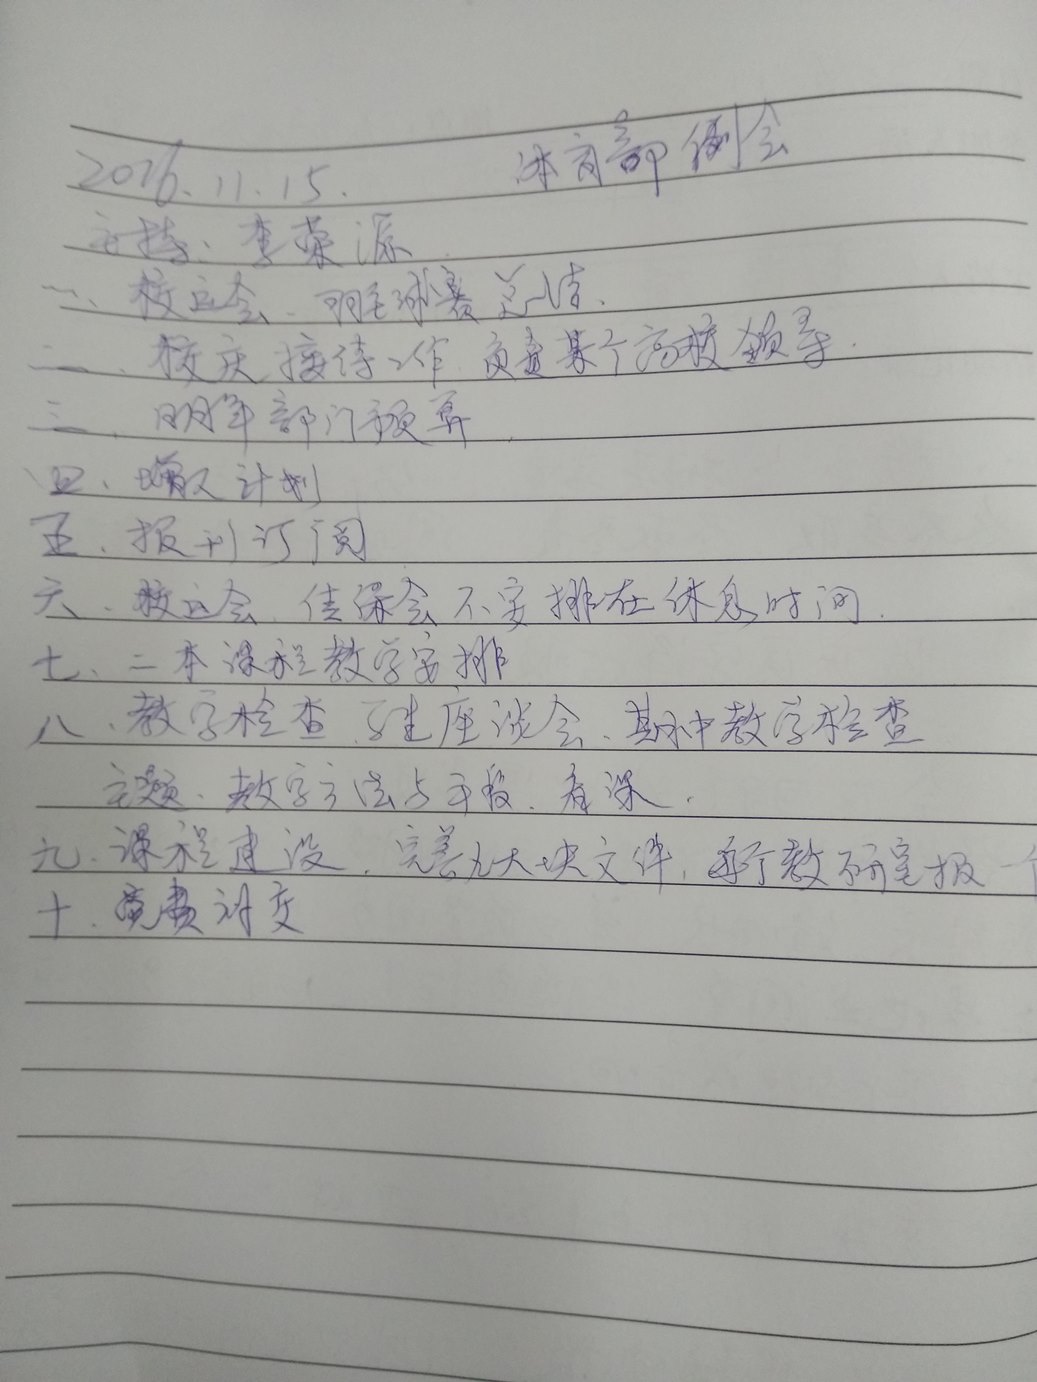 2016.11.15. 体育部例会
主持：李荣源
一、校运会、羽毛球赛总结.
二、校庆接待工作 负责某个高校领导.
三、明年部门预算.
四、增收计划
五、报刊订阅
六、校运会、佳绵会不安排在休息时间.
七、二本课程教学安排
八、教学检查、座谈会、期中教学检查
主题、教学方法与手段、看课.
九、课程建设、完善九大块文件, 每个教研室报一个
十、党费讨交